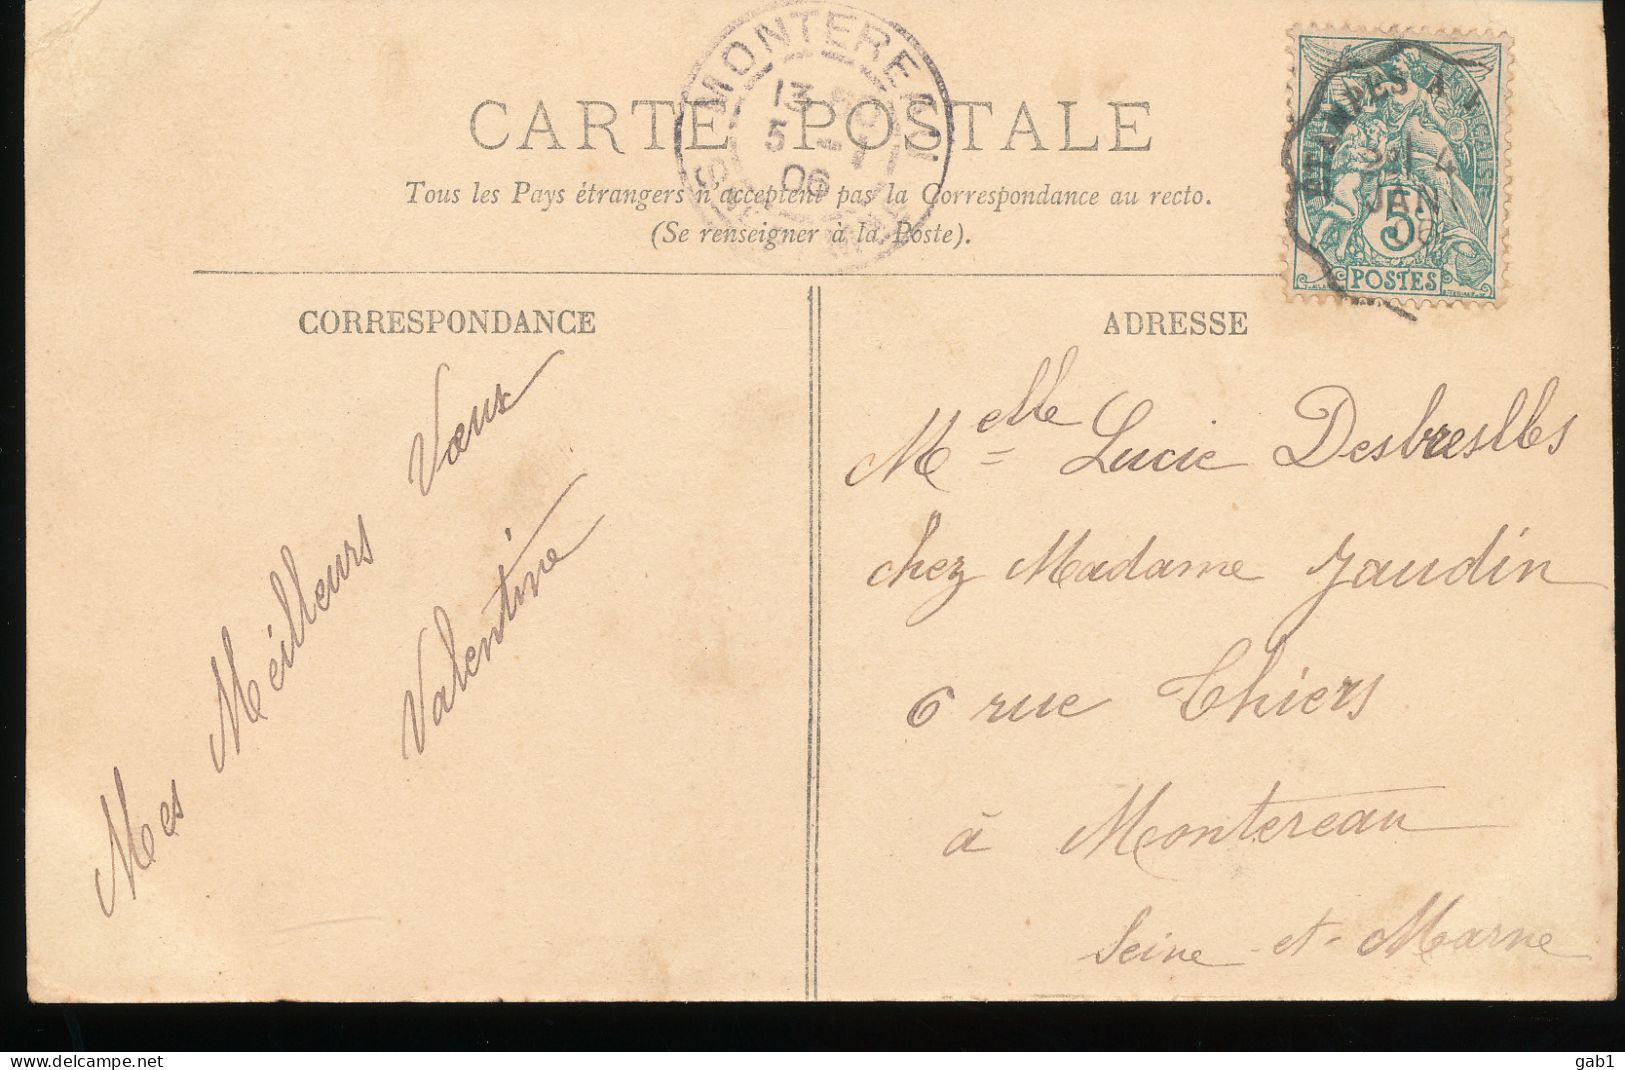 MONTEREAU
13
5 - 1
06
CARTE POSTALE
Tous les Pays étrangers n'acceptent pas la Correspondance au recto.
(Se renseigner à la Poste).
ETAMPES A
4
JANV
06
5
POSTES
CORRESPONDANCE
Mes Meilleurs Vœux
Valentine
ADRESSE
Melle Lucie Desbreslles
chez Madame Jaudin
6 rue Thiers
à Montereau
Seine-et-Marne
www.delcampe.net
gab1